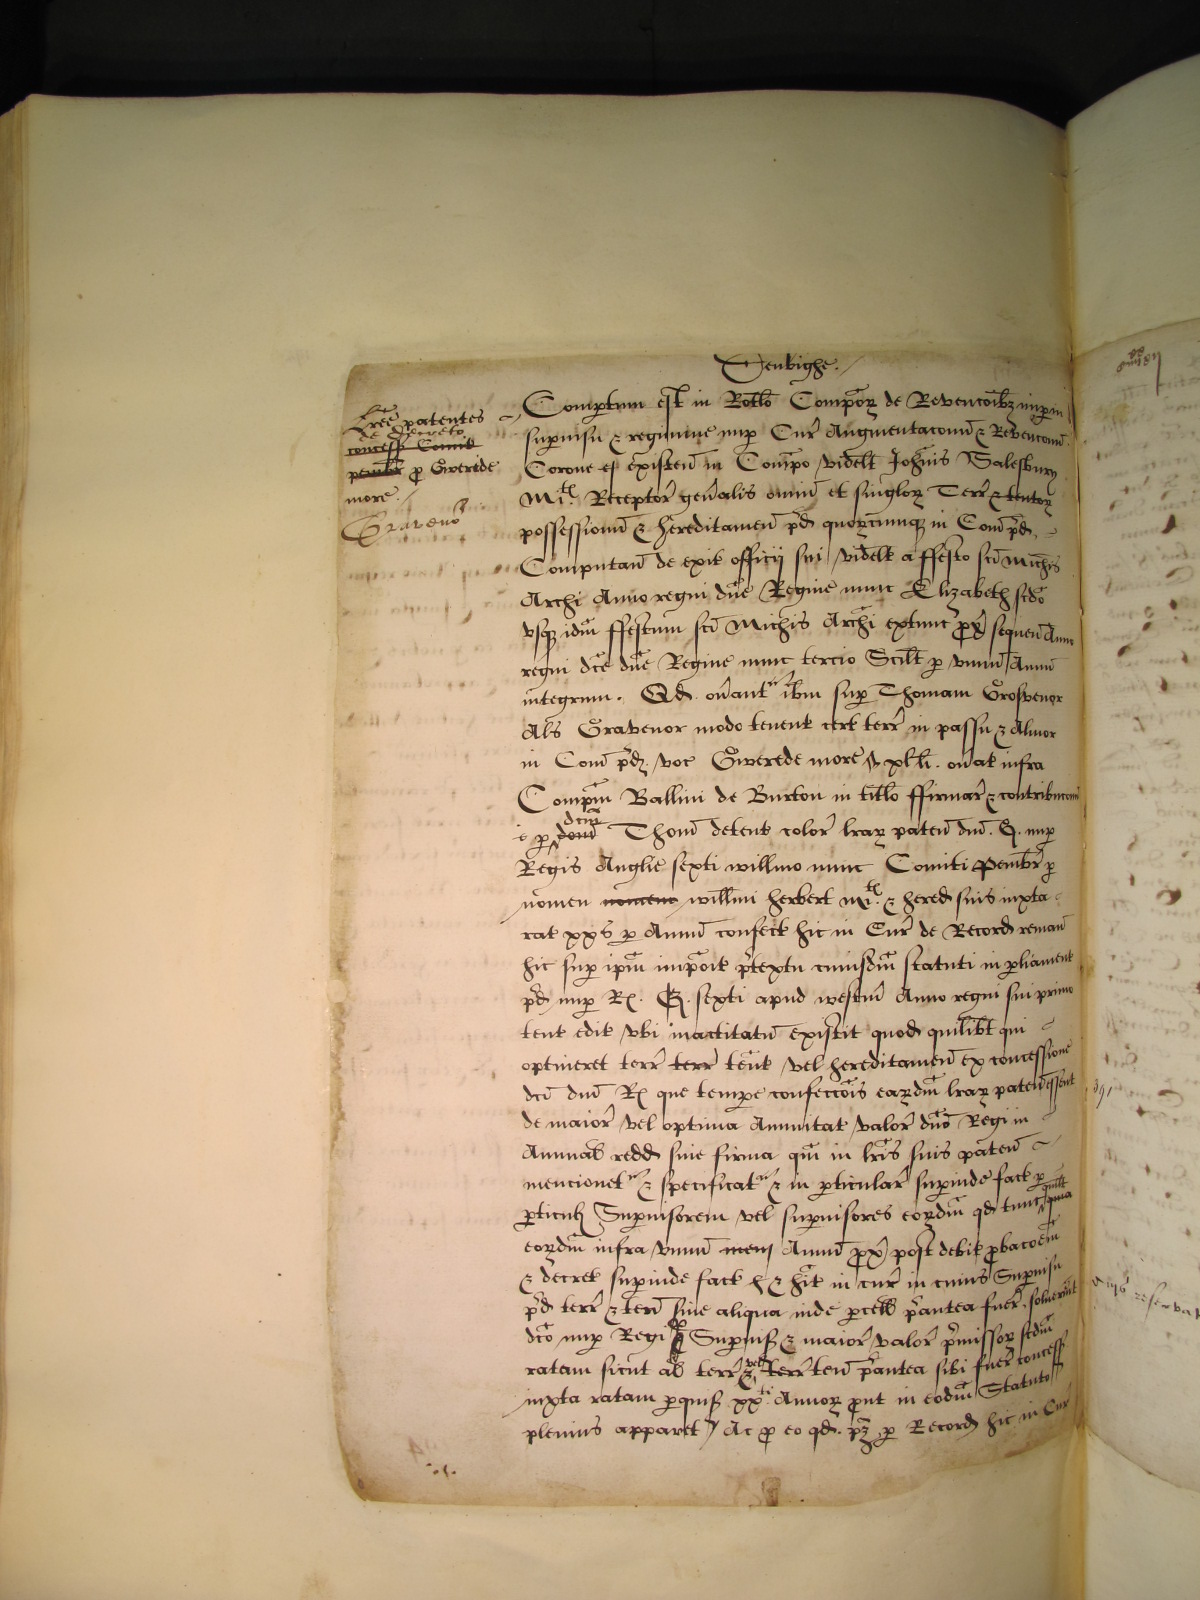 Denbighe.
Lrē patentes
de decreto
concess Comit
pembr p Gwerede
more.
Gravenor
Comptum est in Rotlo Compōr de Revencōibz nup in
supuisu & regimine nup Cur Augmentacōnū & Revencōnū
Corone ei existen in Compo videlt Johnis Salesbury
Mil. Receptor genalis omniū et singlor Terr & tentor
possessionū & hereditamen pd quorcumqz in Com pd.
Computan de exit officij sui videlt a ffesto sci Michis
Archi Anno regni dne Regine nunc Elizabeth scdo
vsqz idm ffestum sci Michis Archi extunc prox sequen Anno
regni dce dne Regine nunc tercio Scilt p vnum Annū
integrum. Qd. onantr ibm sup Thomam Grosvenor
Als Gravenor modo tenent cert terr in passu & Almor
in Com pd. voc Gwerede more xlli. onat infra
Compm Ballini de Burton in titlo ffirmar & contribucōn
p dom dcm Thom detent color lrar paten dni. E. nup
Regis Anglie sexti willmo nunc Comiti Pembr p
nomen nomene willmi herbert mil. & hered suis iuxta
rat xxs p Annū confect hic in Cur de Record reman
hic sup ipm impoit ptextu cuiusdm statuti in pliament
pd nup R. E. sexti apud westm Anno regni sui primo
tent edit vbi inactitatū existit quod quilibt qui
optineret terr terr tent vel hereditamen ex concessione
dci dni R que tempe confeccōis eardm lrar paten essent
de maior vel optima Annuitat valor dno Regi in
Annuab redd siue firma qm in lris suis paten
mencionetr & specificatr & in pticular supinde fact p
pticuł Supuisorem vel supuisores eordm qd tunc quilt
eordm infra vnum mens Annū prox post debit pbacōem
& decret supinde fact & hit in cur in cuius Supuisu
pd terr & ten siue aliqua inde pcell pantea fuer, soluerit
dco nup Regi Supuiss & maior valor pmissor scdm
ratam sicut ab terr & vel terr ten pantea sibi fuer concess
iuxta ratam pquis xxti Annor put in eodm Statuto
plenius apparet Ac p eo qd. pz p Record hic in Cur